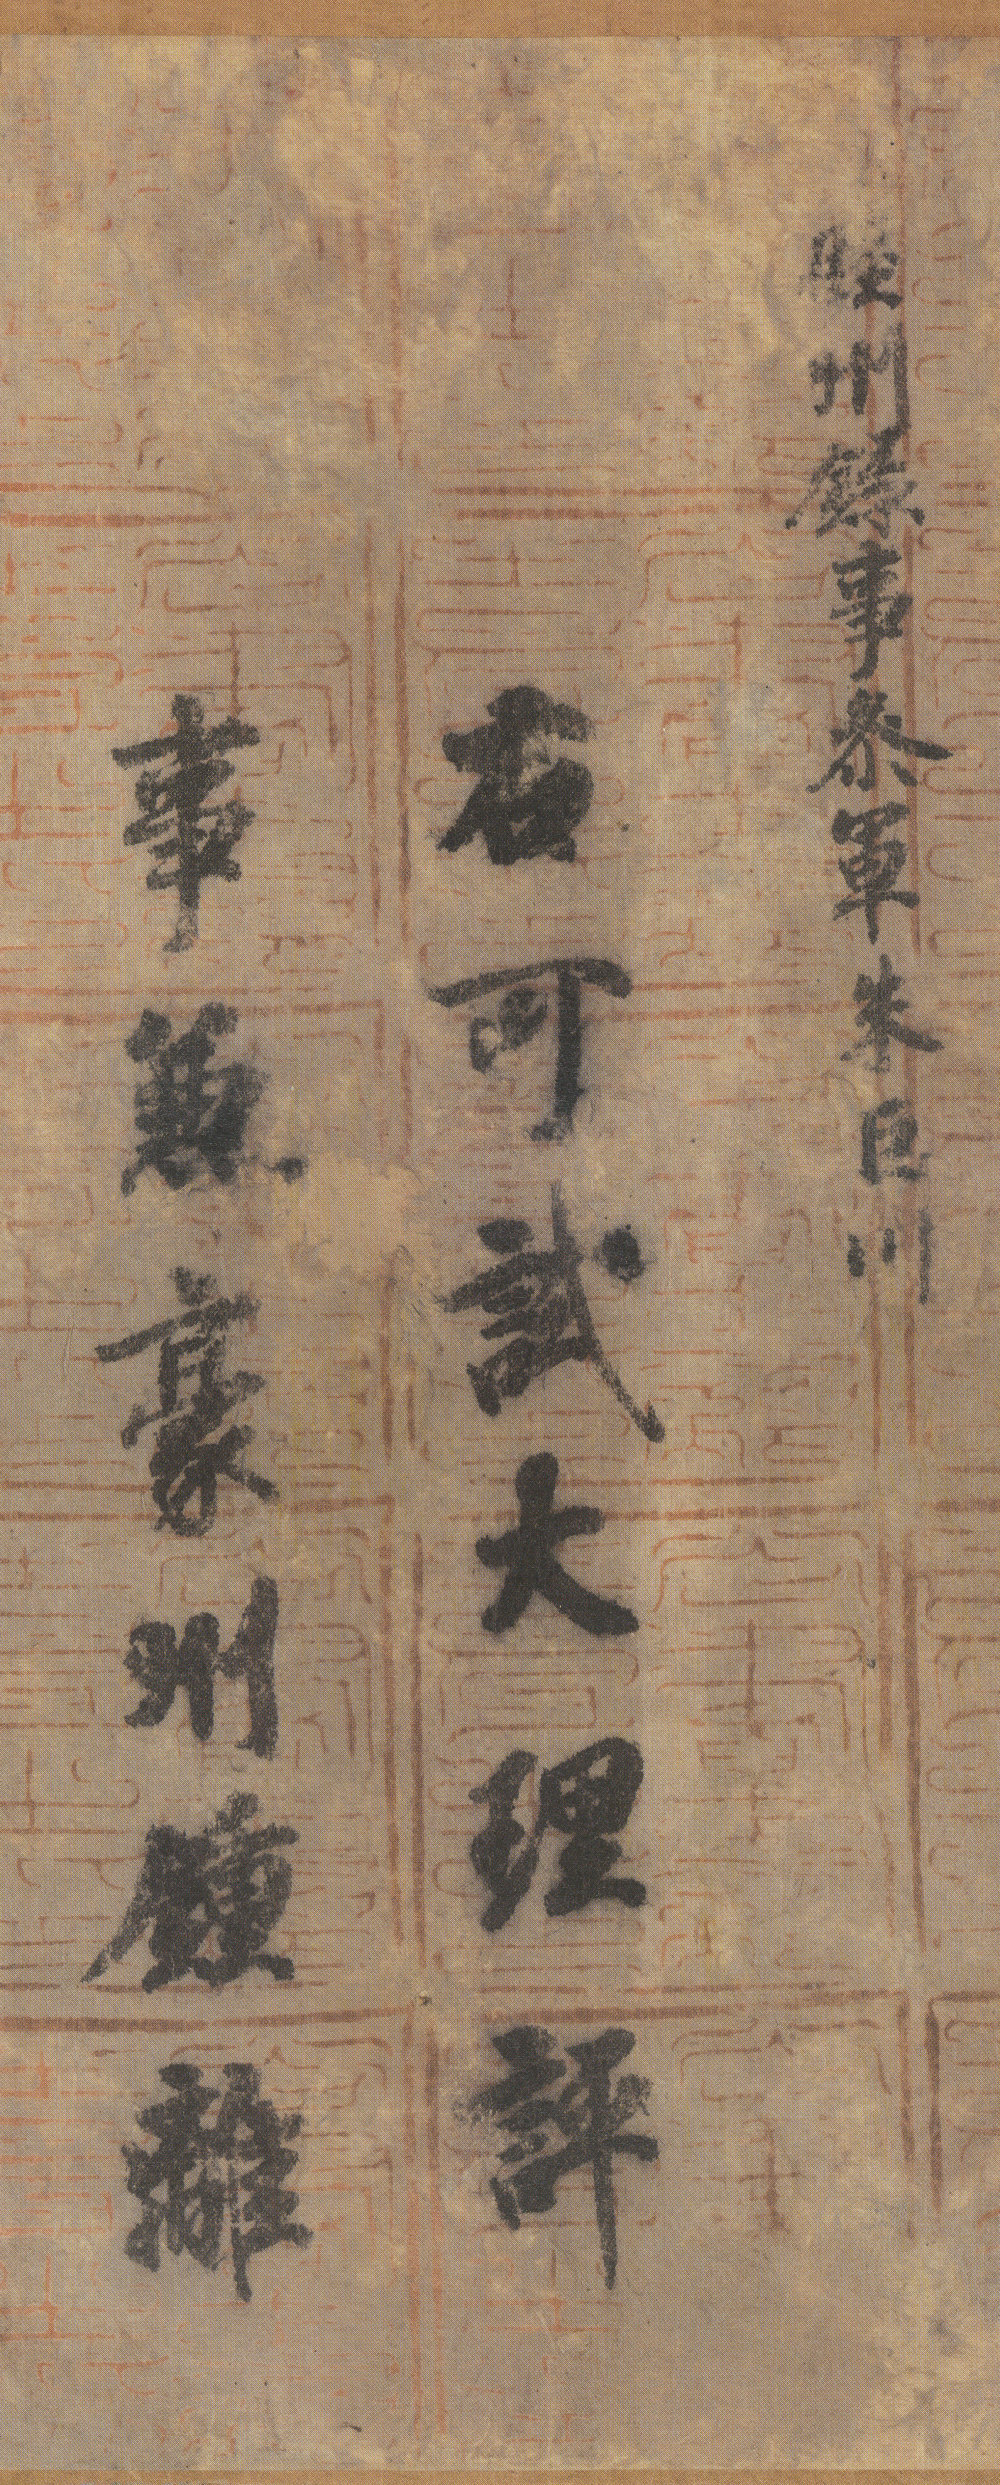 睦州錄事參軍朱巨川
右可試大理評
事兼豪州鍾離